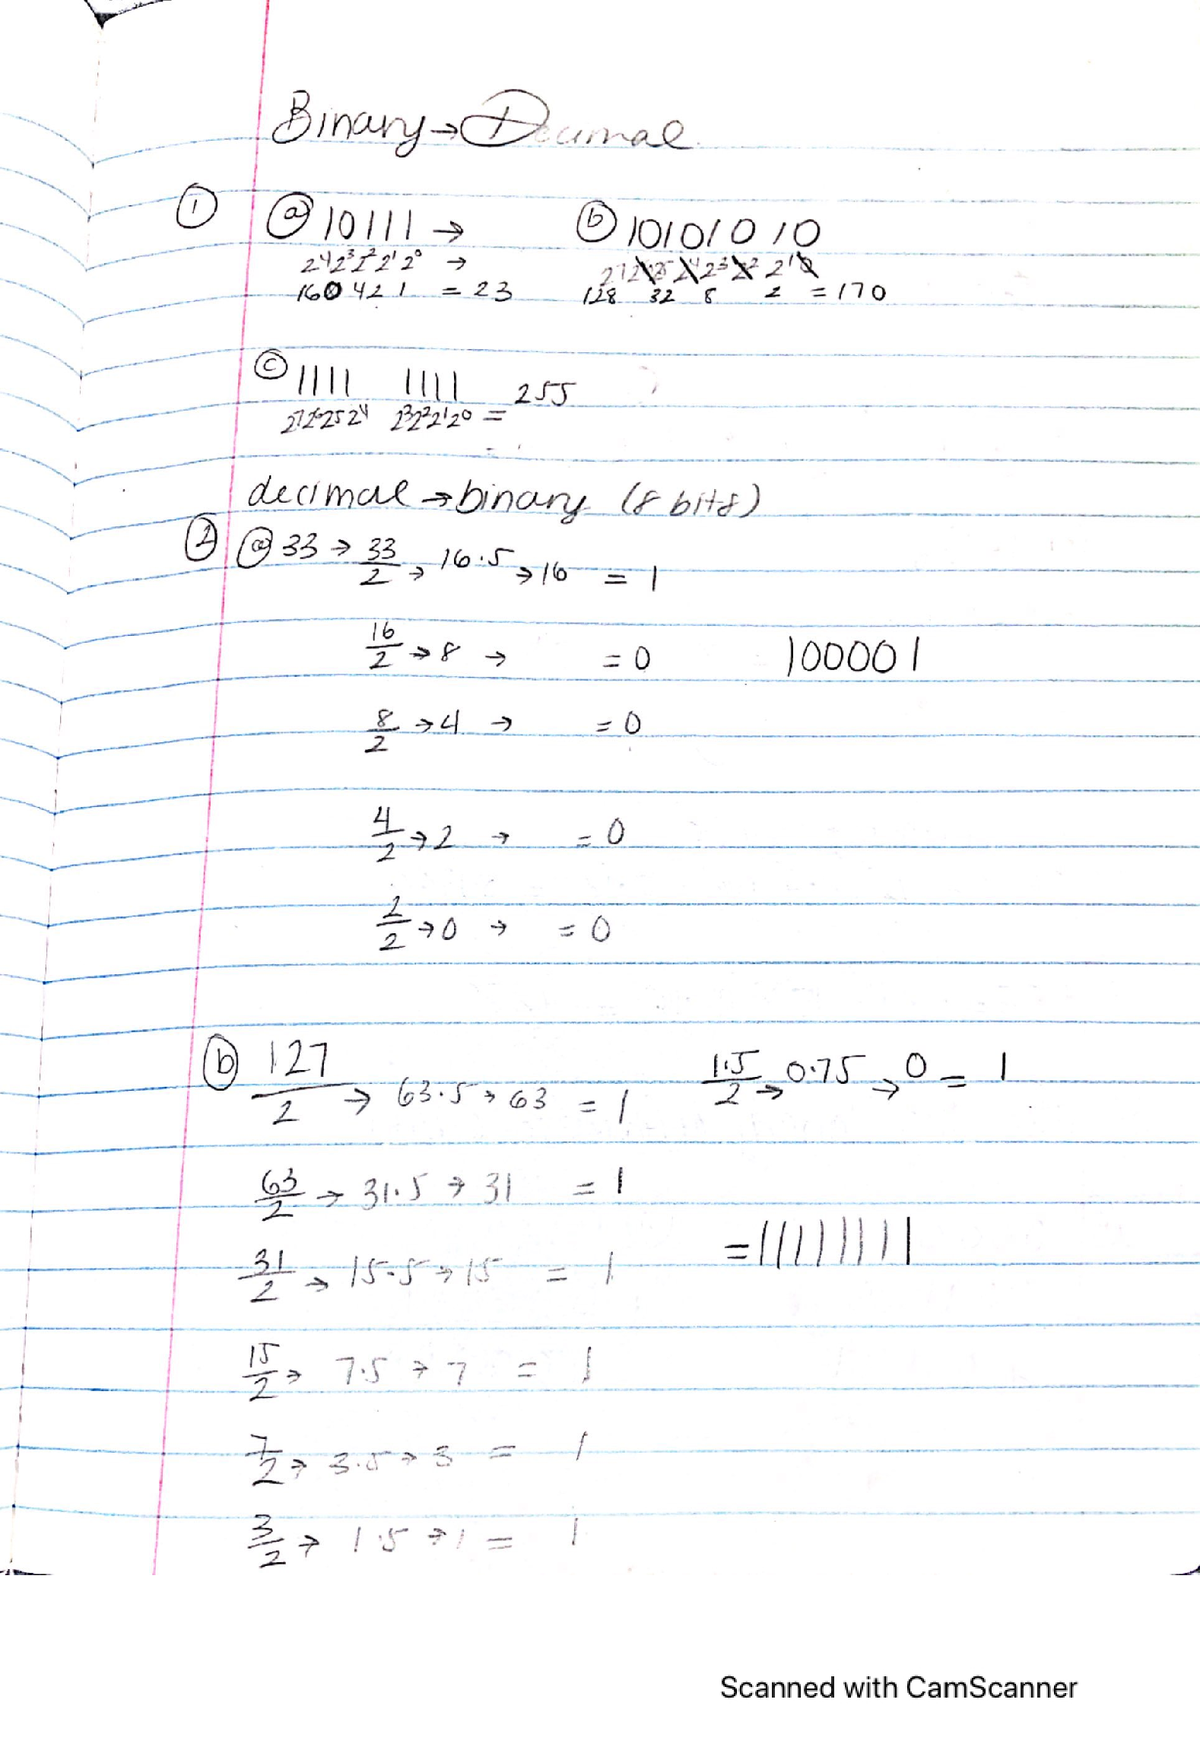 Binary → Decimal
① ⓐ 10111 → ⓑ 10101010
2⁴2³2²2¹2⁰ → 2⁷2⁶2⁵2⁴2³2²2¹2⁰
16 0 4 2 1 = 23 128 32 8 2 = 170
ⓒ 1111 1111 = 255
2⁷2⁶2⁵2⁴ 2³2²2¹2⁰
decimal → binary (8 bits)
② ⓐ 33 → 33/2 → 16.5 → 16 = 1
16/2 → 8 → = 0 100001
8/2 → 4 → = 0
4/2 → 2 → = 0
2/2 → 0 → = 0
ⓑ 127/2 → 63.5 → 63 = 1 1.5/2 → 0.75 → 0 = 1
63/2 → 31.5 → 31 = 1
= 11111111
31/2 → 15.5 → 15 = 1
15/2 → 7.5 → 7 = 1
7/2 → 3.5 → 3 = 1
3/2 → 1.5 → 1 = 1
Scanned with CamScanner